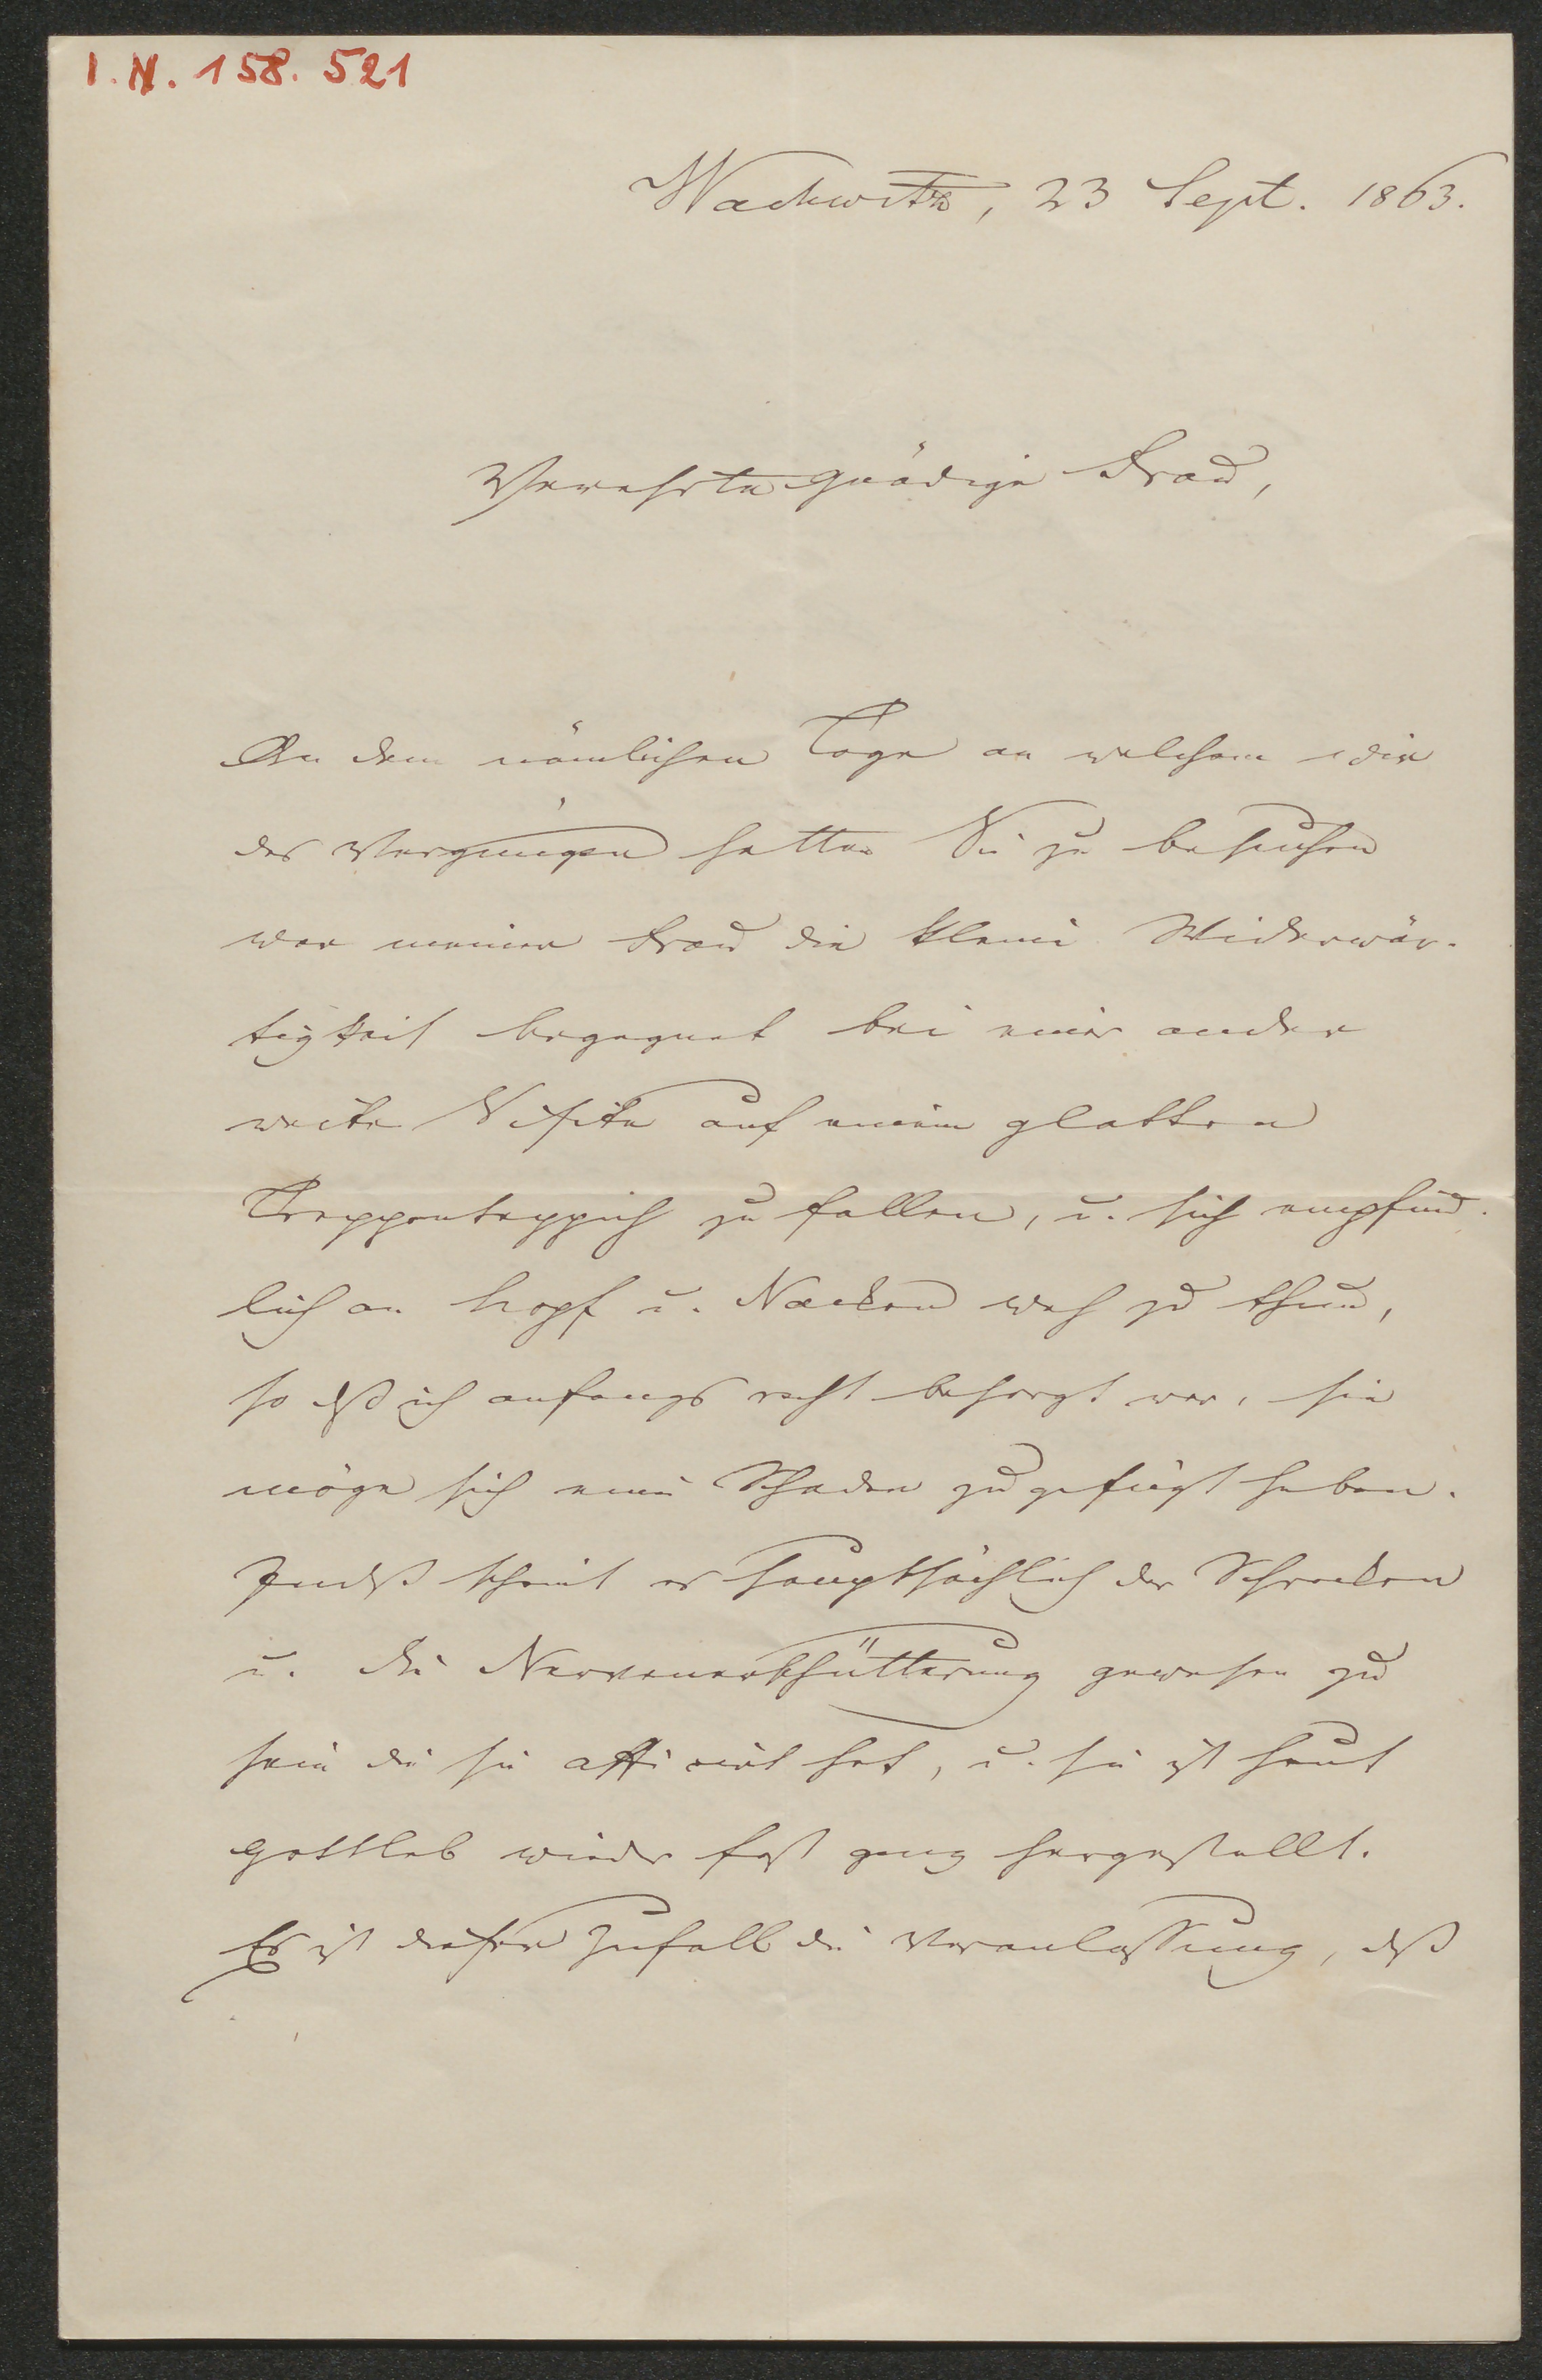 I. N. 158. 521
Wachwitz, 23 Sept. 1863.
Verehrte gnädige Frau,
An dem nämlichen Tage an welchem wir
das Vergnügen hatten Sie zu besuchen
war meiner Frau die kleine Widerwär-
tigkeit begegnet bei einer ander
weiten Visite auf einem glatten
Treppenteppich zu fallen, u. sich empfind-
lich an Kopf u. Nacken weh zu thun,
so dß ich anfangs recht besorgt war, sie
möge sich einen Schaden zugefügt haben.
Indeß scheint es hauptsächlich der Schrecken
u. die Nervenerschütterung gewesen zu
sein die sie afficirt hat, u. sie ist heut
gottlob wieder fast ganz hergestellt.
Es ist dieser Zufall die Veranlassung, dß